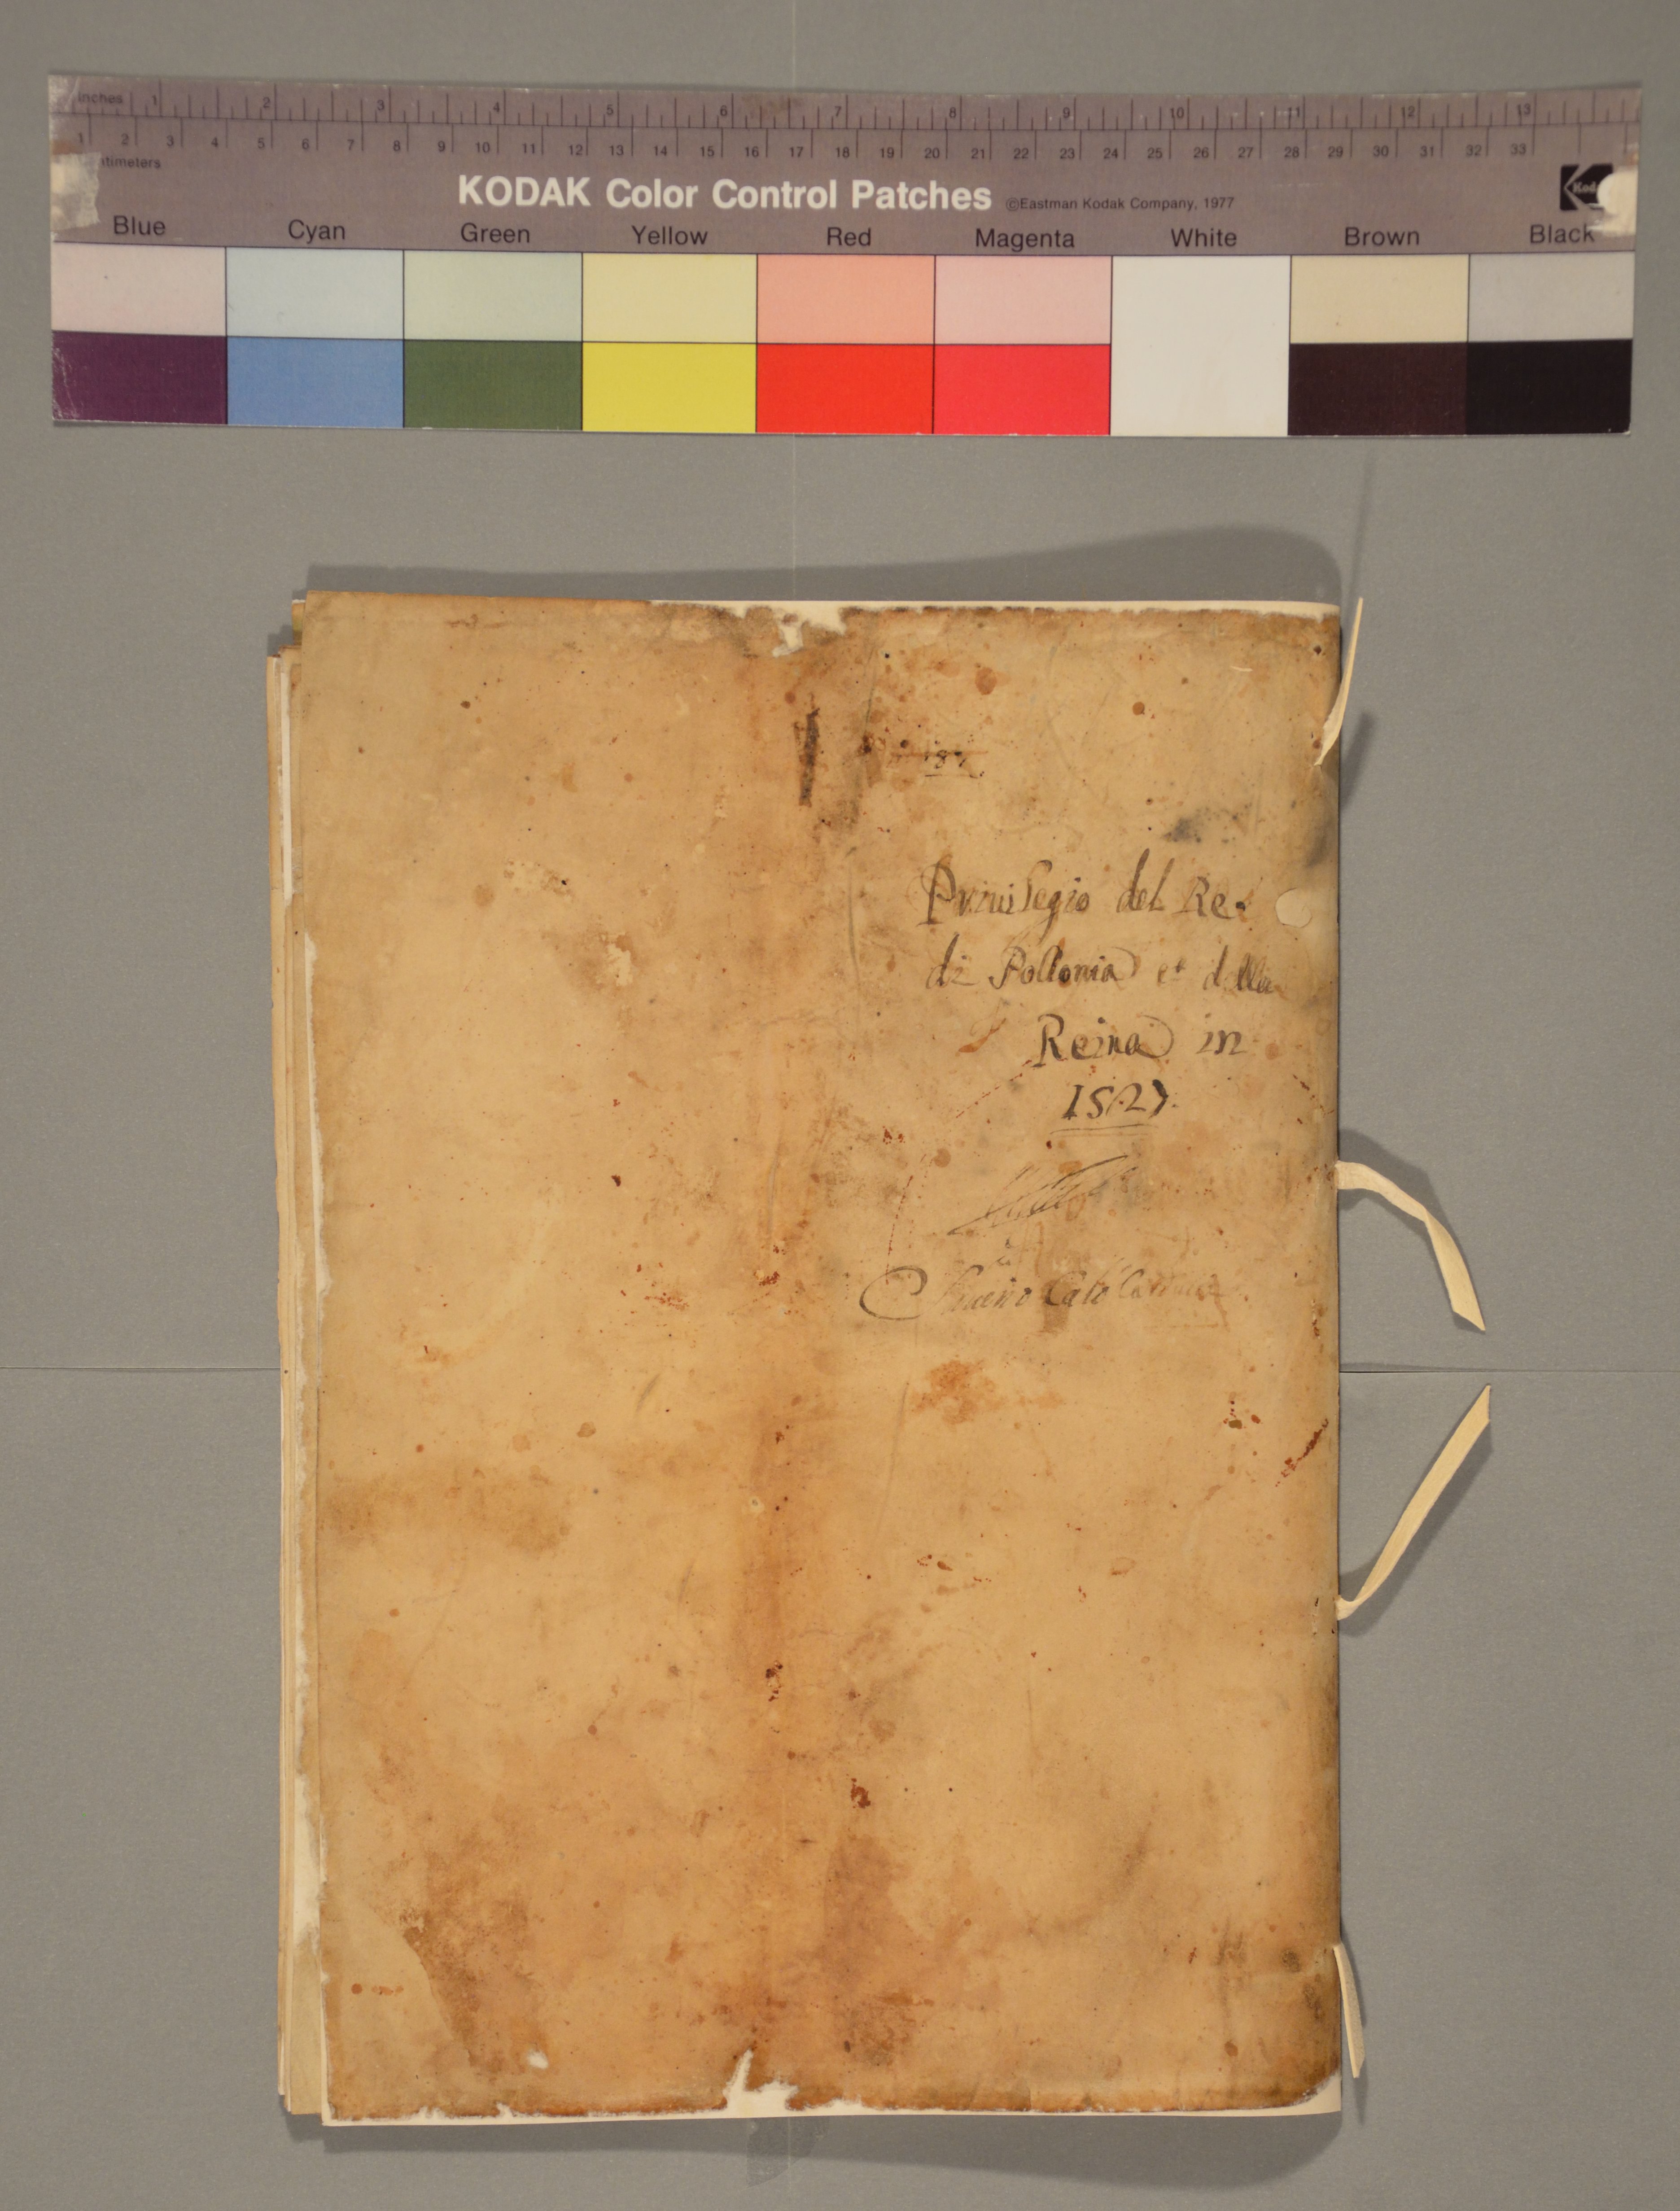 inches 1 2 3 4 5 6 7 8 9 10 11 12 13
1 2 3 4 5 6 7 8 9 10 11 12 13 14 15 16 17 18 19 20 21 22 23 24 25 26 27 28 29 30 31 32 33
timeters
KODAK Color Control Patches ©Eastman Kodak Company, 1977
Blue Cyan Green Yellow Red Magenta White Brown Black
Privilegio del Re
di Pollonia et della
Reina in
1527.